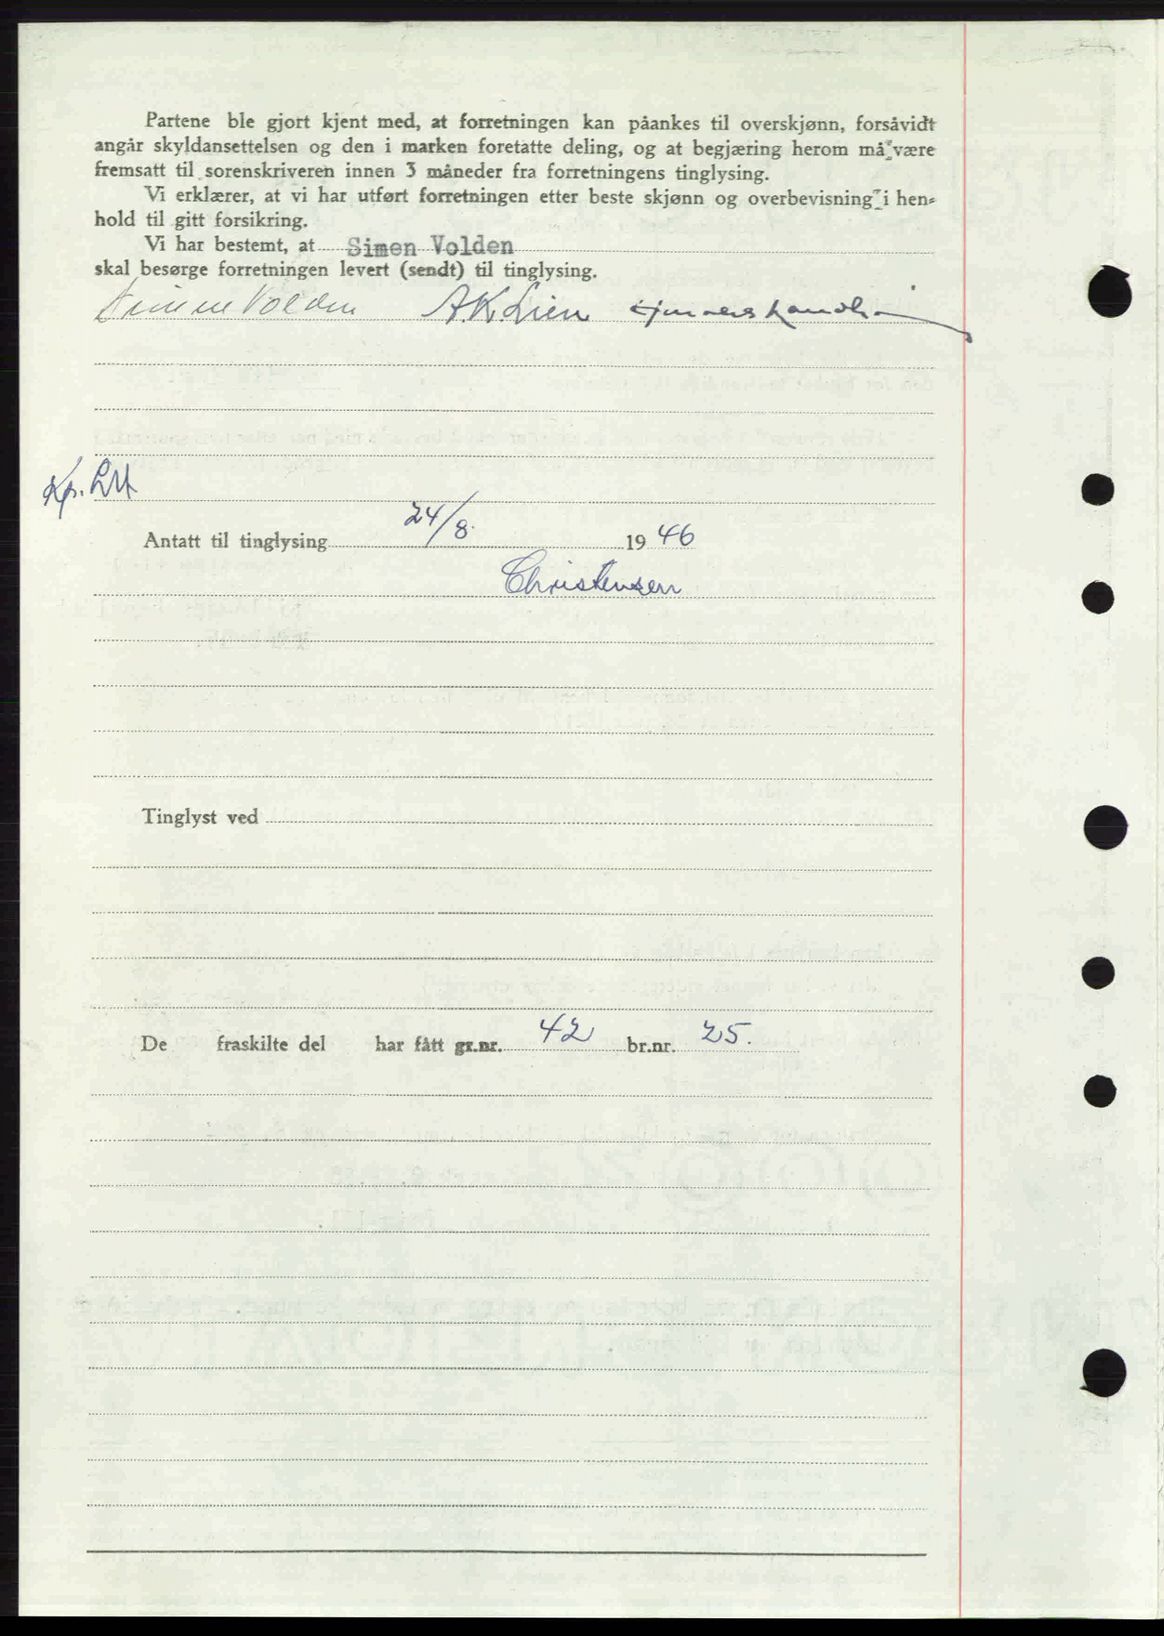 Partene ble gjort kjent med, at forretningen kan påankes til overskjønn, forsåvidt
angår skyldansettelsen og den i marken foretatte deling, og at begjæring herom må være
fremsatt til sorenskriveren innen 3 måneder fra forretningens tinglysing.
Vi erklærer, at vi har utført forretningen etter beste skjønn og overbevisning i hen-
hold til gitt forsikring.
Vi har bestemt, at Simen Volden
skal besørge forretningen levert (sendt) til tinglysing.
Simen Volden A.K. Lien
Kp. LM
Antatt til tinglysing 24/8. 1946
Christensen
Tinglyst ved
De fraskilte del har fått gr.nr. 42 br.nr. 25.